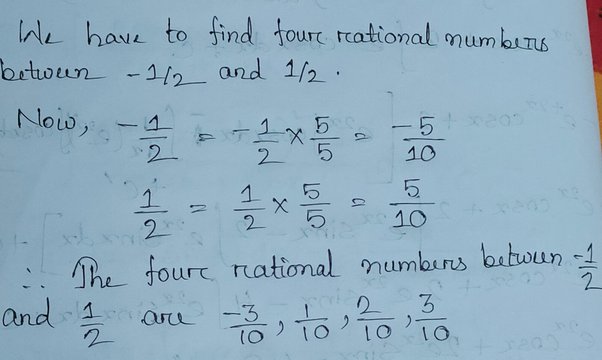 We have to find four rational numbers
between -1/2 and 1/2.
Now, -1/2 = -1/2 × 5/5 = -5/10
1/2 = 1/2 × 5/5 = 5/10
∴ The four rational numbers between -1/2
and 1/2 are -3/10, 1/10, 2/10, 3/10